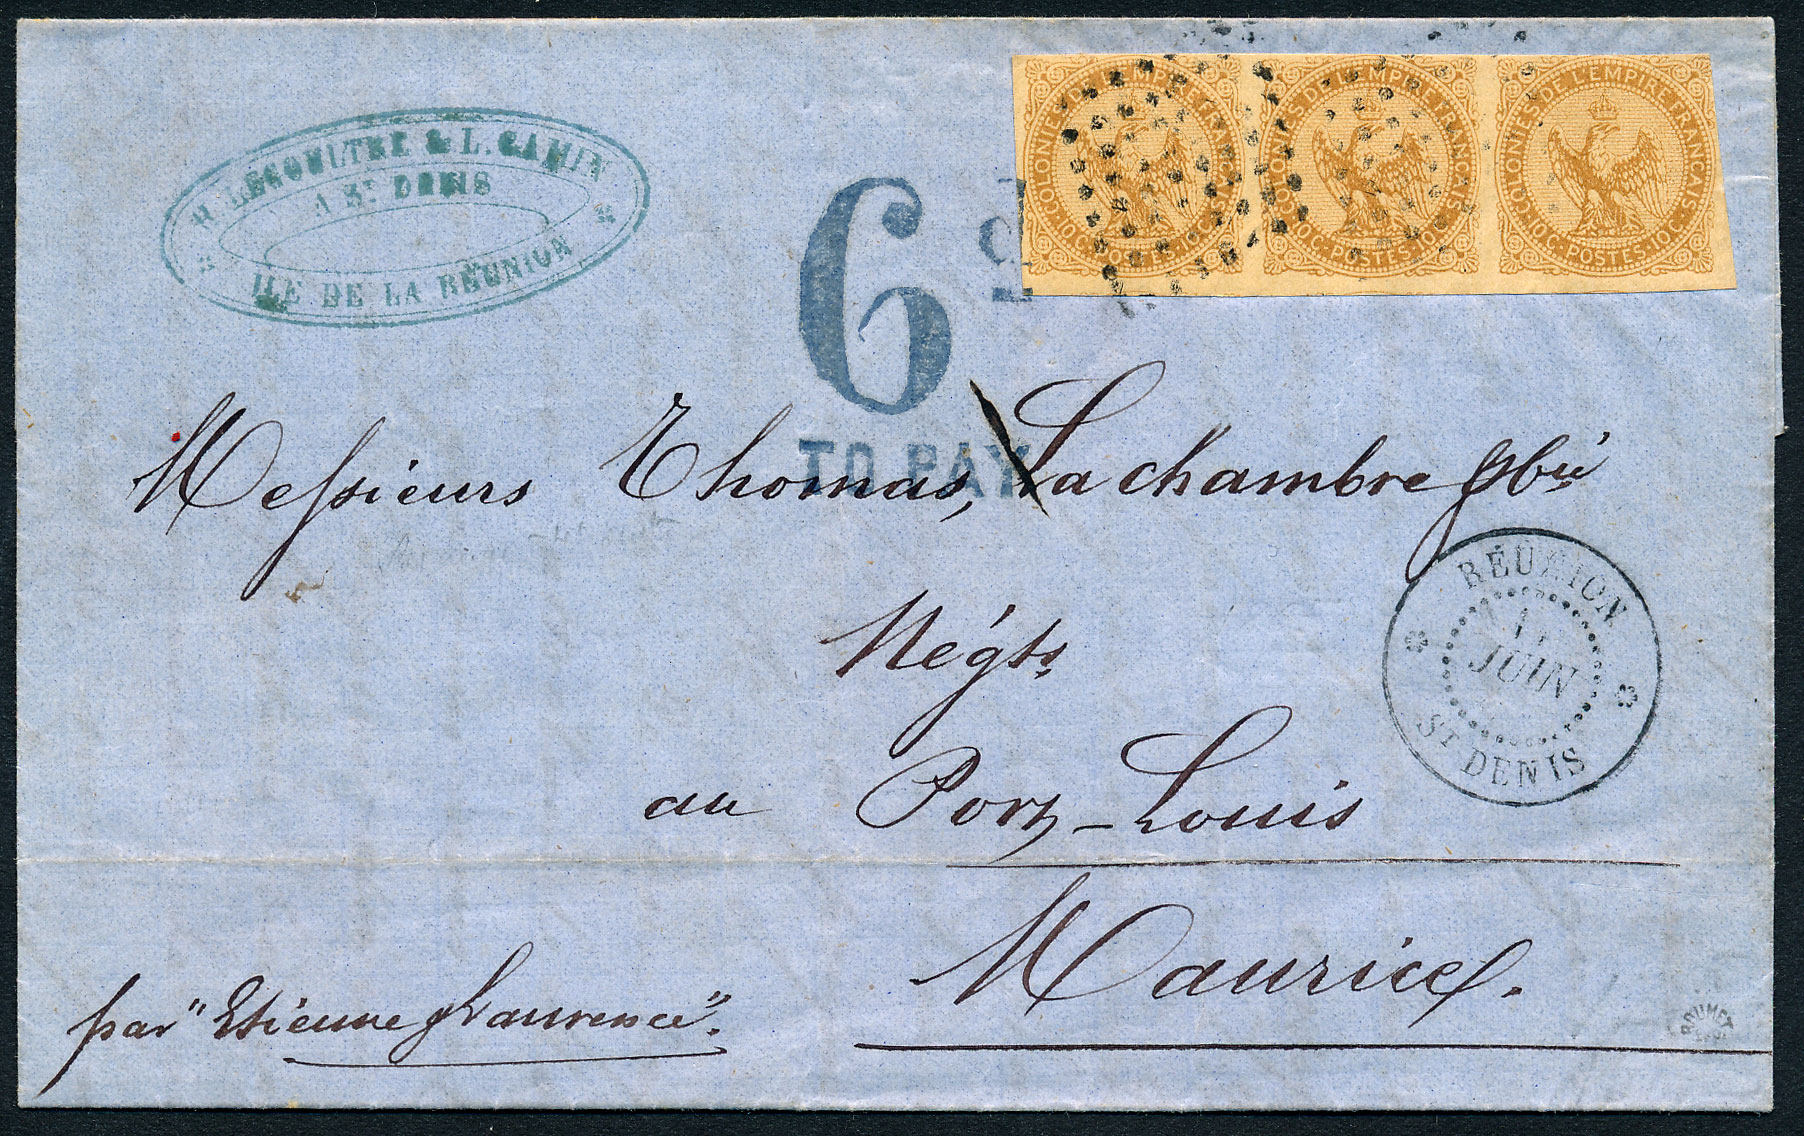 H. LECOULTRE & L. CAMIN
A St. DENIS
ILE DE LA RÉUNION
6 d
TO PAY
COLONIES DE L'EMPIRE FRANÇAIS
10 C. POSTES 10 C.
COLONIES DE L'EMPIRE FRANÇAIS
10 C. POSTES 10 C.
COLONIES DE L'EMPIRE FRANÇAIS
10 C. POSTES 10 C.
Messieurs Thomas, Lachambre &
RÉUNION
JUIN
St DENIS
Négts
au Port-Louis
Maurice.
par "Etienne & Laurence".
ROUMET